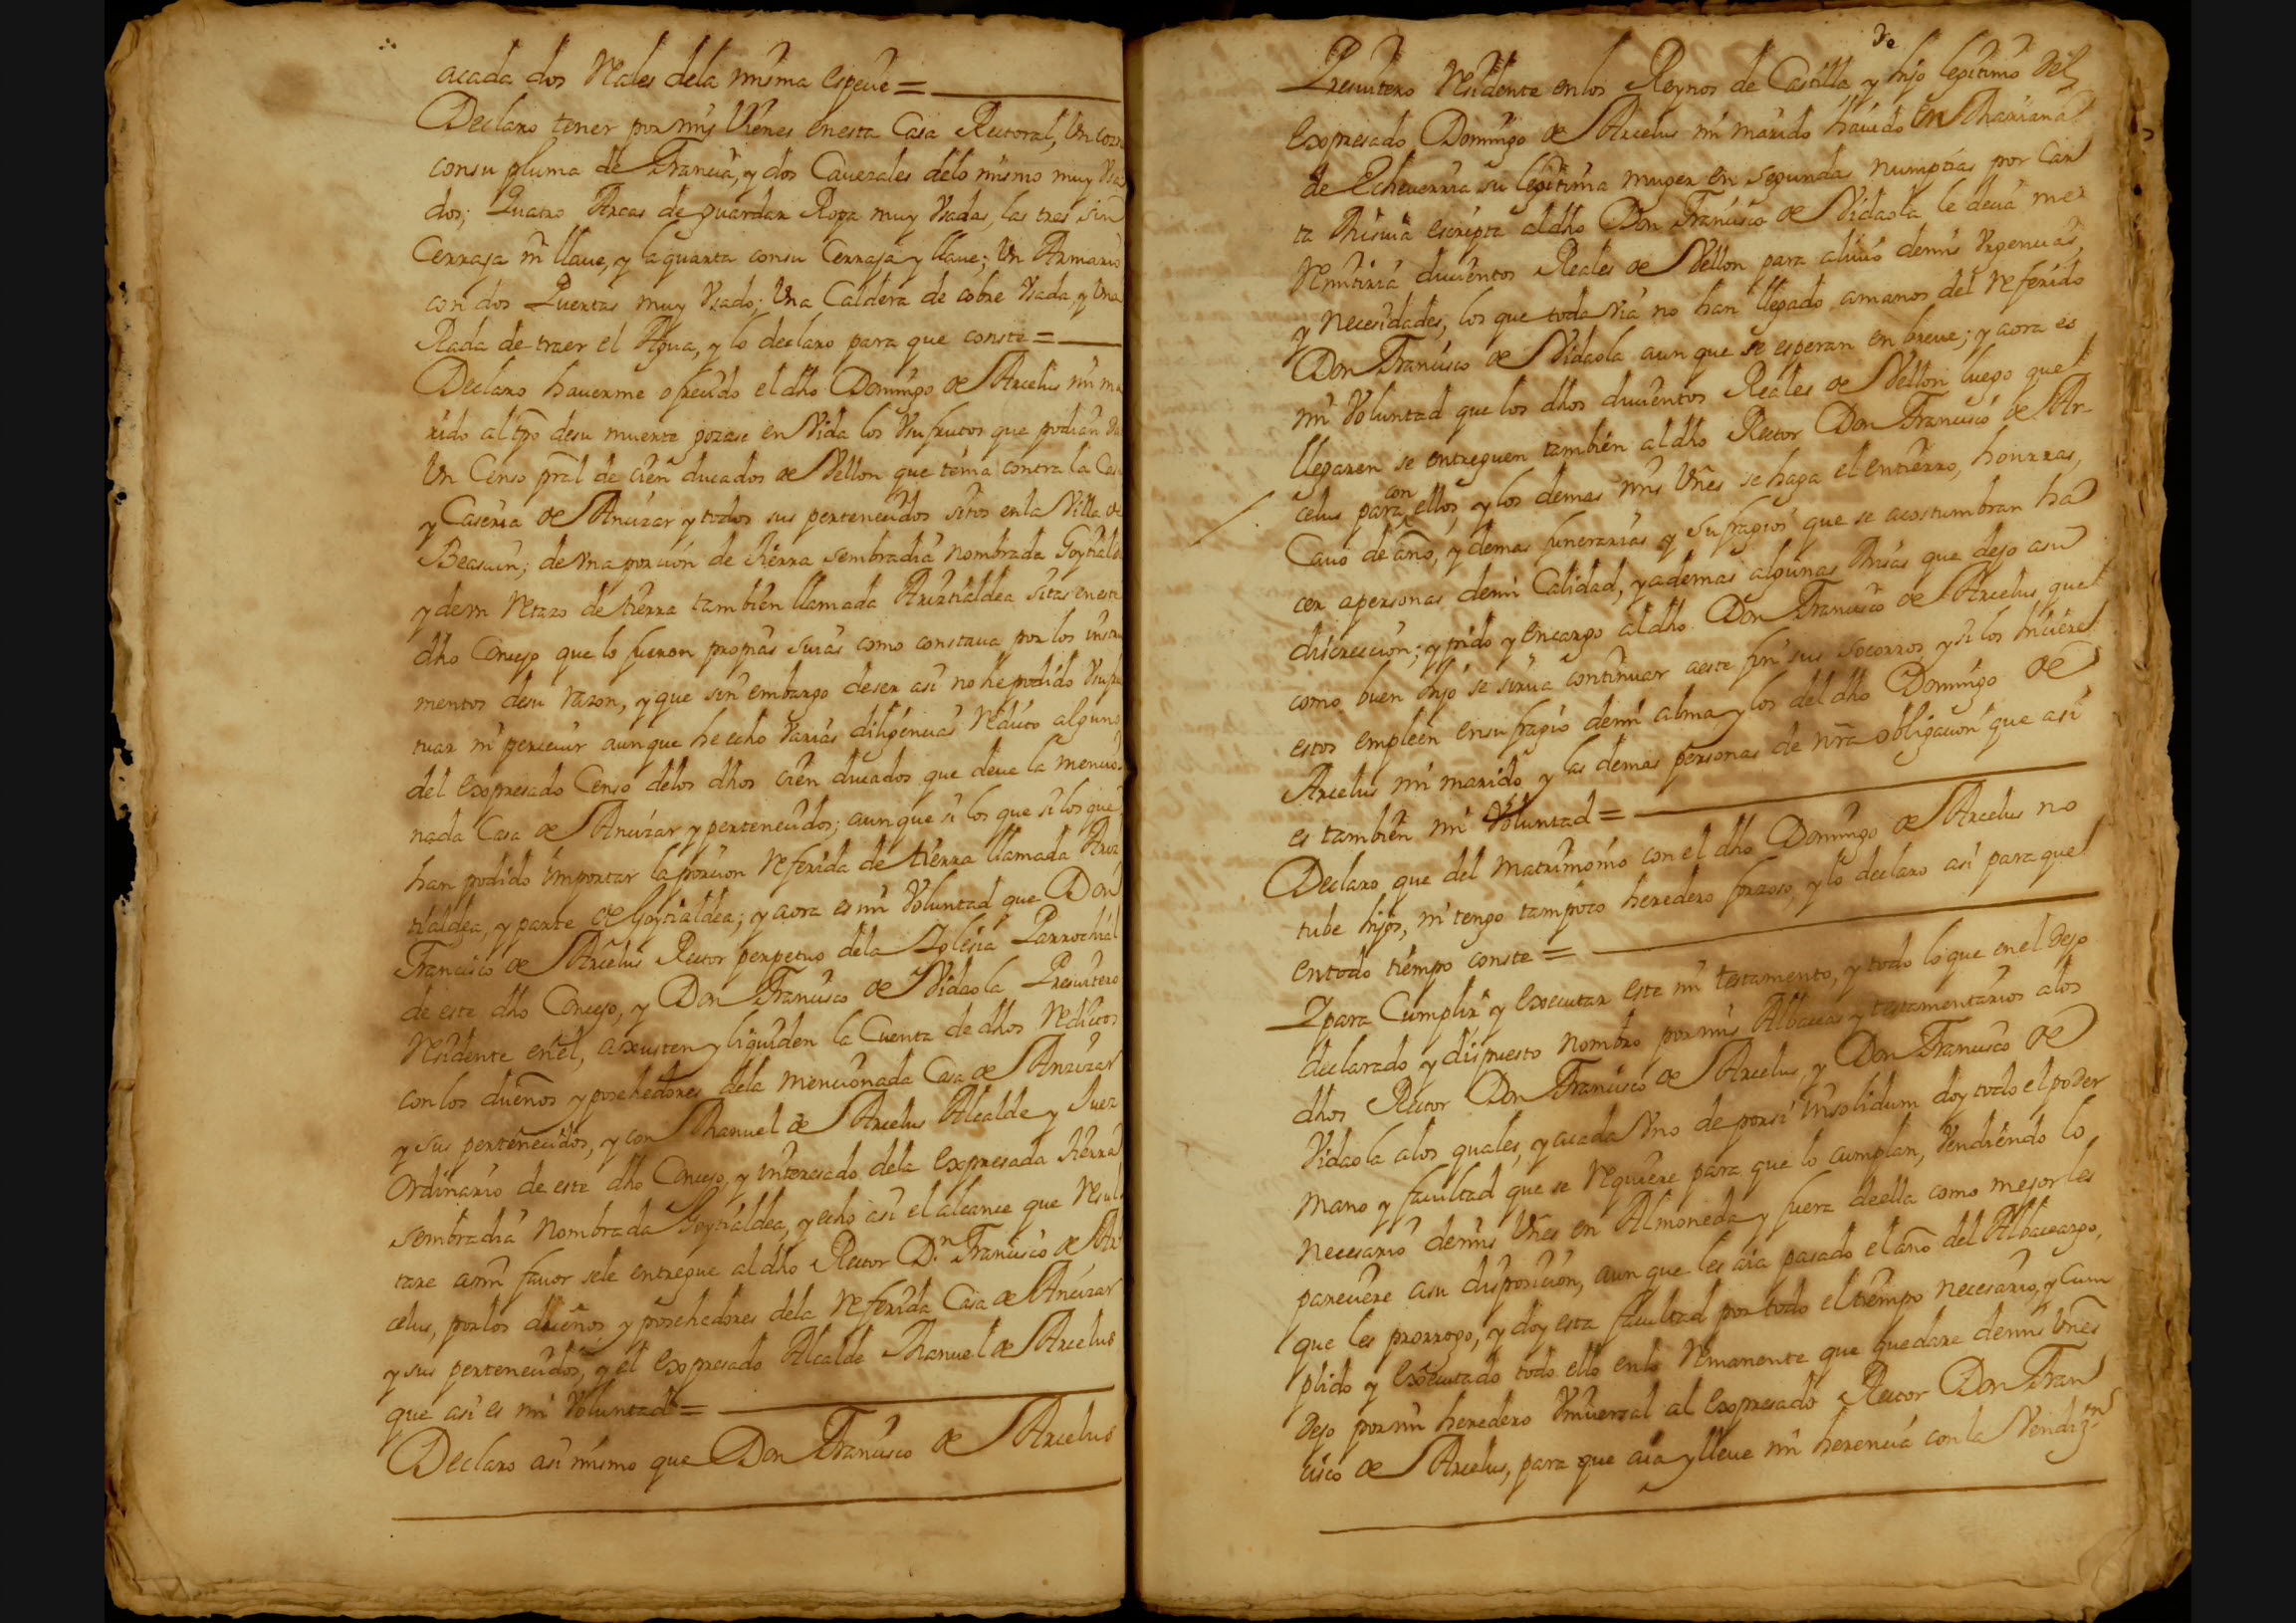 acada dos Reales dela misma espeçie =
Declaro tener por mis Vienes enesta Casa Rectoral, Un
consu pluma de Francia, y dos Cauezales delo mismo muy Vsa
dos; Quatro Arcas de guardar Ropa muy Vsadas, las tres sin
Cerraja ni llaue, y la quarta consu Cerraja y llaue; Un Armario
con dos Puertas muy Vsado; Una Caldera de cobre Vsada, y Una
Rada de traer el Agua, y lo declaro para que conste =
Declaro hauerme ofrecido el dho Domingo de Arcelus mi ma
rido al tpo desu muerte gozase en Vida los Vsufrutos que podian
Un Censo pral de cien ducados de Vellon que tenia contra la Cas
y Caseria de Ancizar y todos sus pertenecidos sitos enla Villa de
Beasain; de Vna porcion de tierra sembradia nombrada Goytialde
y deun retazo de tierra tambien llamada Ariztialdea sitas eneste
dho Concejo que lo fueron propias suias como constaua por los instru
mentos desu razon, y que sin embargo deser asi no he podido Vsufru
tuar ni perceuir aunque he echo Varias diligencias reditos alguno
del expresado Censo delos dhos cien ducados que deue la mencio
nada Casa de Ancizar y pertenecidos; aunque si los que si los que
han podido importar la porcion referida de tierra llamada Ariz
tialdea, y parte de Goytialdea; y aora es mi Voluntad que Don
Francisco de Arcelus Rector perpetuo dela Iglesia Parrochial
de este dho Concejo, y Don Francisco de Vidaola Presuitero
residente enel, axusten y liquiden la Cuenta de dhos reditos
con los dueños y posehedores dela mencionada Casa de Ancizar
y sus pertenecidos, y con Manuel de Arcelus Alcalde y Juez
Ordinario de este dho Concejo, y interesado dela expresada tierra
sembradia nombrada Goytialdea, y echo asi el alcance que resul
tare ami fauor sele entregue al dho Rector Dn Francisco de Ar
celus, por los dueños y posehedores dela referida Casa de Ancizar
y sus pertenecidos, y el expresado Alcalde Manuel de Arcelus
que asi es mi Voluntad =
Declaro asi mismo que Don Francisco de Arcelus
Presuitero residente enlos Reynos de Castilla y hijo legitimo del
expresado Domingo de Arcelus mi marido hauido en Mariana
de Echeuerria su legitima muger en segundas numptias por Car
ta Misiua escripta al dho Don Francisco de Vidaola le decia me
remitiria ducientos Reales de Vellon para aliuio demis Vrgencias,
y necesidades, los que toda Via no han llegado amanos del referido
Don Francisco de Vidaola aun que se esperan en breue; y aora es
mi Voluntad que los dhos ducientos Reales de Vellon luego que
llegaren se entreguen tambien al dho Rector Don Francisco de Ar-
celus para con ellos, y los demas mis Vnes se haga el entierro, honrras,
Cauo de año, y demas funerarias y Sufragios que se acostumbran ha
cer apersonas demi Calidad, y ademas algunas Misas que dejo asu
discrecion; y pido y encargo al dho Don Francisco de Arcelus que
como buen hijo se sirua continuar aeste fin sus socorros y si los hiciere
estos empleen ensufragio demi alma y los del dho Domingo de
Arcelus mi marido y las demas personas de nra obligacion que asi
es tambien mi Voluntad =
Declaro que del matrimonio con el dho Domingo de Arcelus no
tube hijos, ni tengo tampoco heredero forzoso, y lo declaro asi para que
entodo tiempo conste =
Ypara Cumplir y executar este mi testamento, y todo lo que enel dejo
declarado y dispuesto nombro por mis Albaceas y testamentarios alos
dhos Rector Don Francisco de Arcelus, y Don Francisco de
Vidaola alos quales, y acada Vno de porsi insolidum doy todo el poder
mano y facultad que se requiere para que lo cumplan, Vendiendo lo
necesario demis Vnes en Almoneda y fuera deella como mejor les
pareciere asu disposicion, aun que les aia pasado el año del Albaceazgo,
que les prorrogo, y doy esta facultad por todo el tiempo necesario, y Cum
plido y executado todo ello enlo remanente que quedare demis Vnes
Dejo por mi heredero Vniuersal al expresado Rector Don Fran
cisco de Arcelus, para que aia y lleue mi herencia con la Vendizn